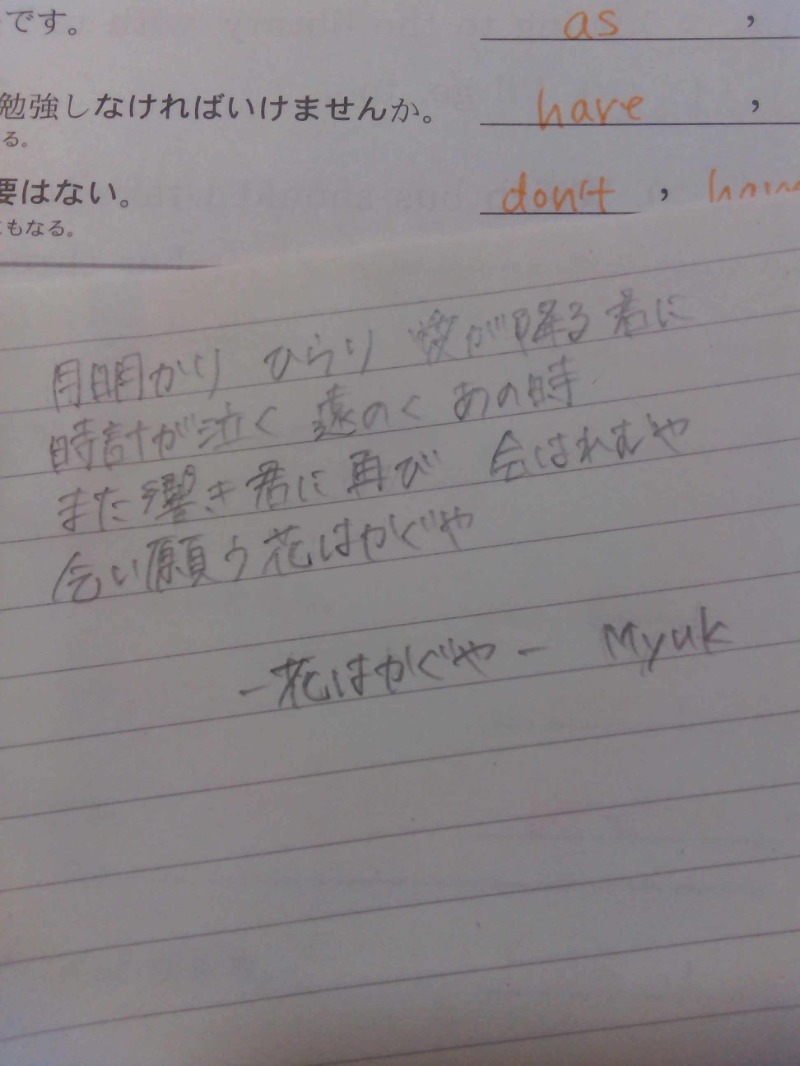 です。 as ,
勉強しなければいけませんか。 have ,
る。
要はない。 don't ,
にもなる。
月明かり ひらり 愛が降る君に
時計が泣く 遠のく あの時
また響き君に再び 会はれむや
会い願う花はかぐや
ー花はかぐやー Myuk